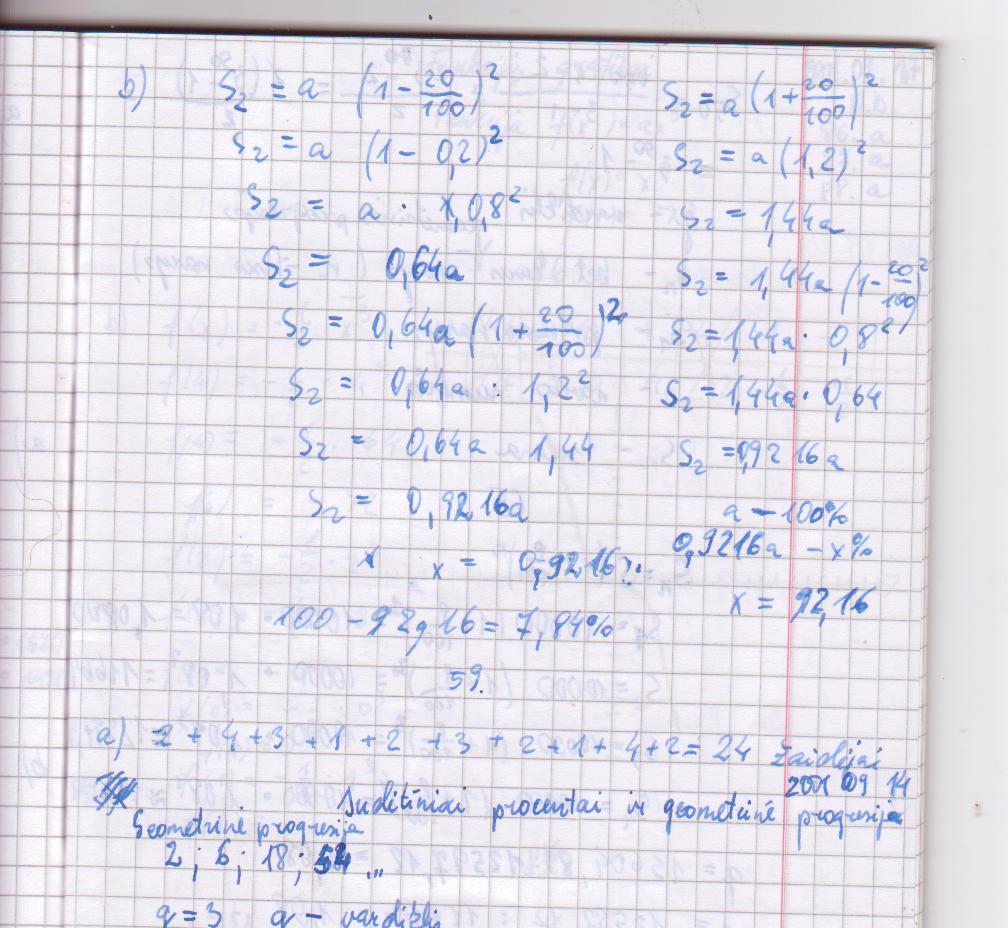 b) S₂ = a (1 - 20/100)²
S₂ = a (1 - 0,2)²
S₂ = a · 0,8²
S₂ = 0,64a
S₂ = 0,64a (1 + 20/100)²
S₂ = 0,64a · 1,2²
S₂ = 0,64a 1,44
S₂ = 0,9216a
x = 0,9216
100 - 92,16 = 7,84%
S₂ = a (1 + 20/100)²
S₂ = a (1,2)²
S₂ = 1,44a
S₂ = 1,44a (1 - 20/100)²
S₂ = 1,44a · 0,8²
S₂ = 1,44a · 0,64
S₂ = 0,9216a
a - 100%
0,9216a - x%
x = 92,16
59.
a) 2 + 4 + 3 + 1 + 2 + 3 + 2 + 1 + 4 + 2 = 24 žaidėjai
2001 09 14
Sudėtiniai procentai ir geometrinė progresija
Geometrinė progresija
2 ; 6 ; 18 ; 54 ...
q = 3 q - vardiklis